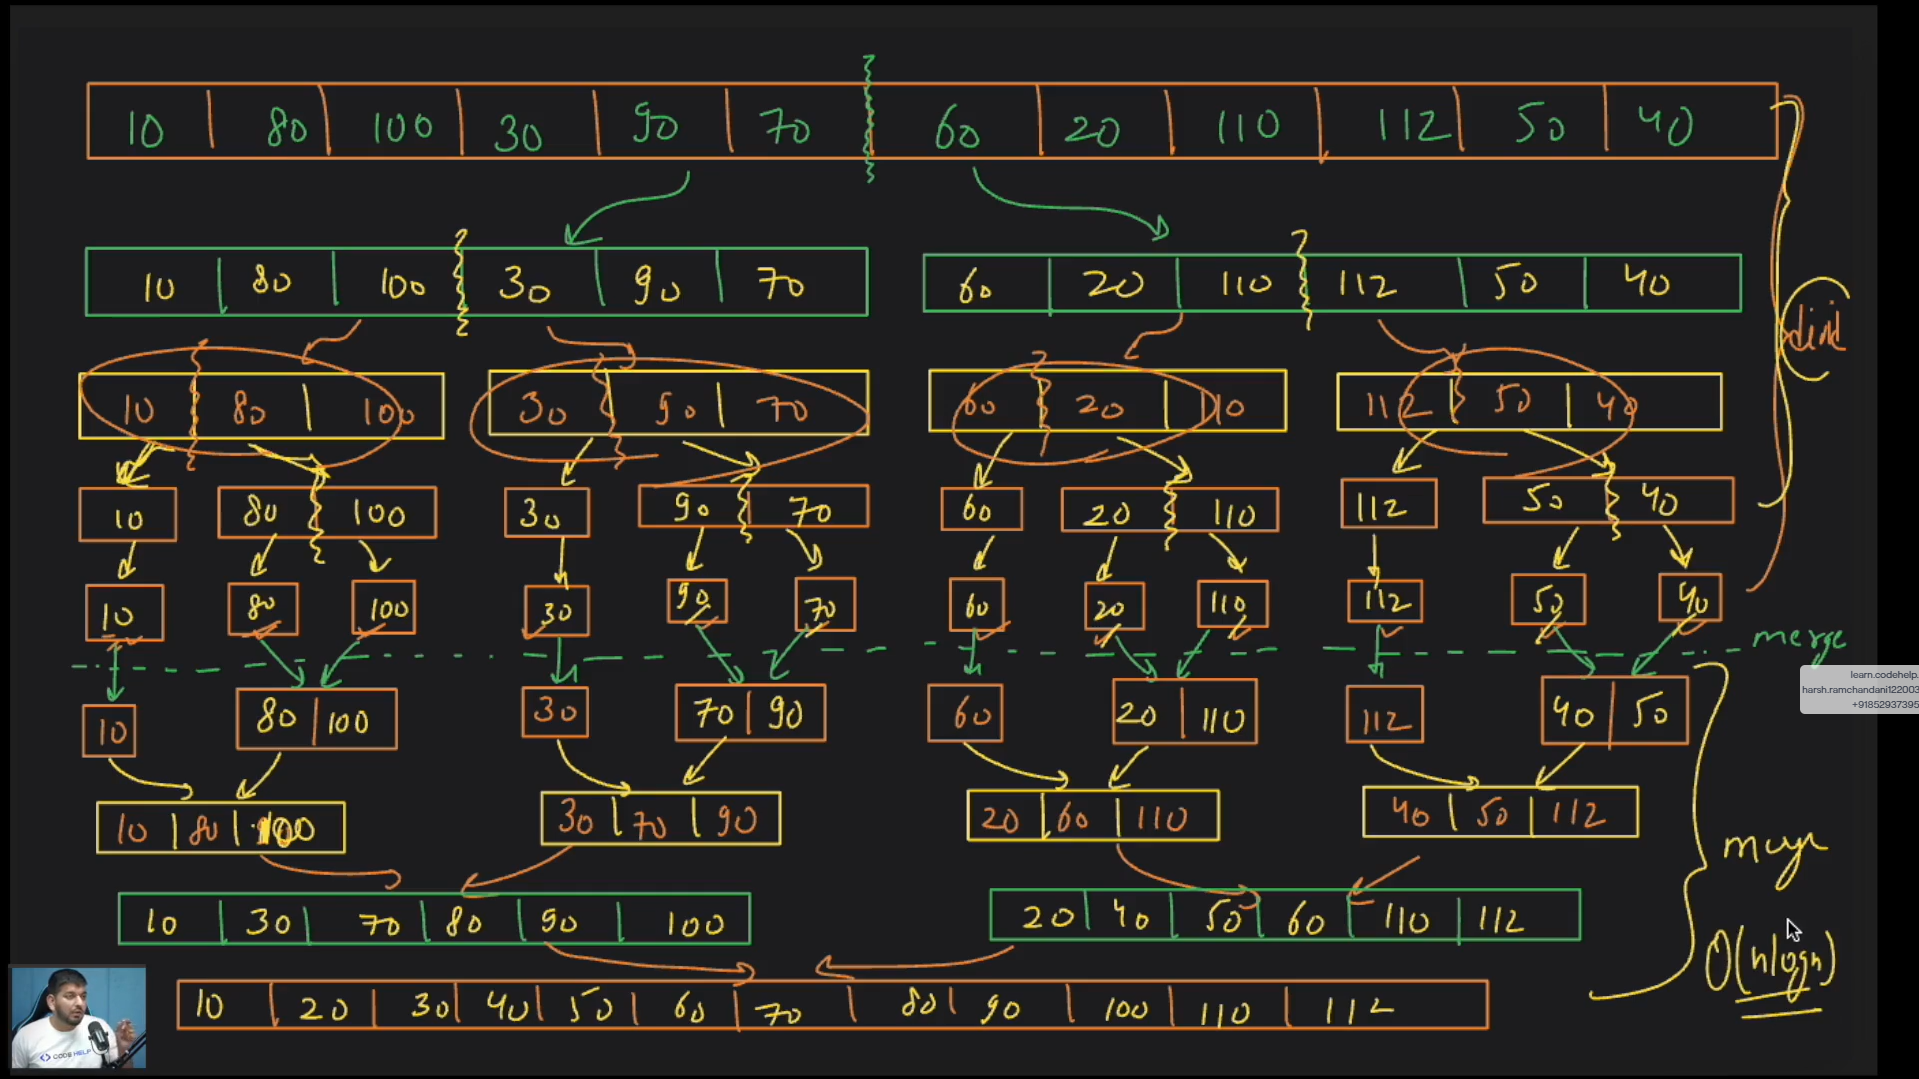 10 80 100 30 90 70 60 20 110 112 50 40
10 80 100 30 90 70 60 20 110 112 50 40
10 80 100 30 90 70 60 20 110 112 50 40
10 80 100 30 90 70 60 20 110 112 50 40
10 80 100 30 90 70 60 20 110 112 50 40
merge
learn.codehelp.
harsh.ramchandani122003
+91852937395
10 80 100 30 70 90 60 20 110 112 40 50
10 80 100 30 70 90 20 60 110 40 50 112
merge
10 30 70 80 90 100 20 40 50 60 110 112
O(nlogn)
10 20 30 40 50 60 70 80 90 100 110 112
CODE HELP